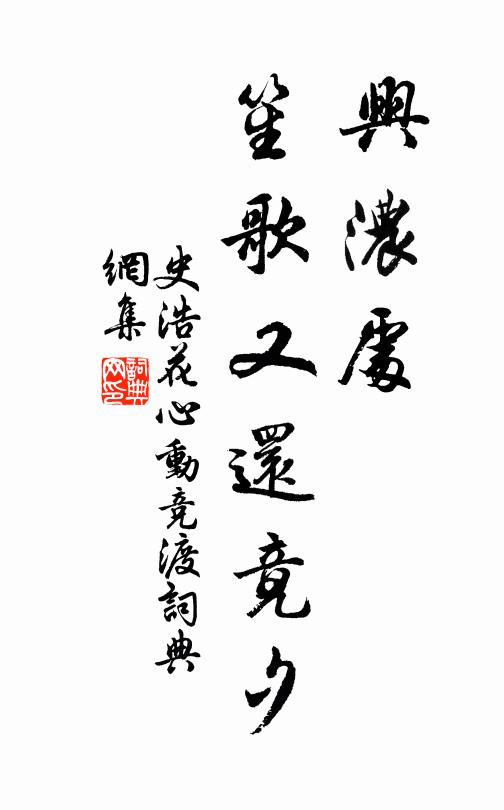 興濃處
笙歌又還竟夕
史浩花心動競渡詞典
網集
詞典
网印